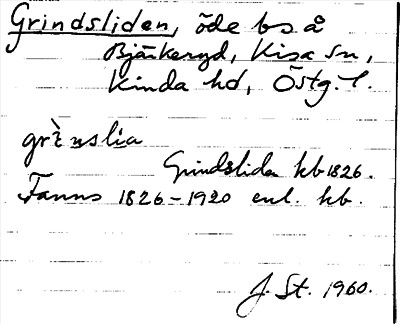 Grindsliden, öde bs å
Bjärkeryd, Kisa sn,
Kinda hd, Östg. l.
grìnslia
Grindslida kb 1826.
Fanns 1826-1920 enl. kb.
J. St. 1960.